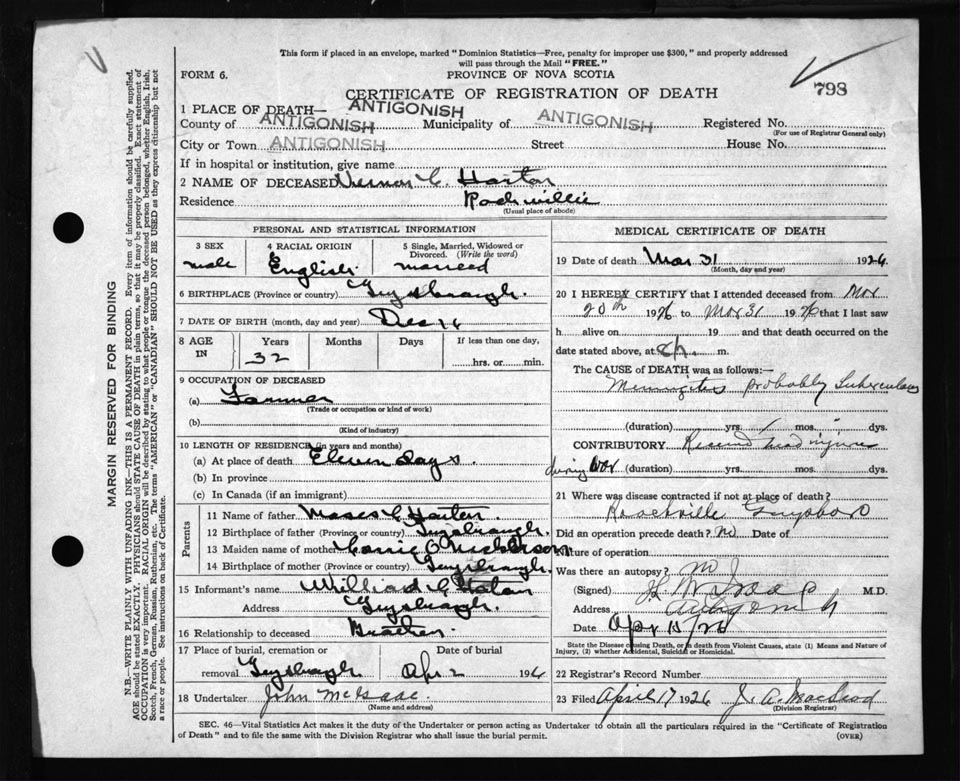 This form if placed in an envelope, marked "Dominion Statistics—Free, penalty for improper use $300," and properly addressed
will pass through the Mail "FREE."
FORM 6.
PROVINCE OF NOVA SCOTIA
798
CERTIFICATE OF REGISTRATION OF DEATH
1 PLACE OF DEATH— ANTIGONISH
County of ANTIGONISH Municipality of ANTIGONISH Registered No.
(For use of Registrar General only)
City or Town ANTIGONISH Street House No.
If in hospital or institution, give name
2 NAME OF DECEASED Vernon C. Horton
Residence Roachville
(Usual place of abode)
PERSONAL AND STATISTICAL INFORMATION
3 SEX 4 RACIAL ORIGIN 5 Single, Married, Widowed or Divorced. (Write the word)
male English married
6 BIRTHPLACE (Province or country) Guysborough.
7 DATE OF BIRTH (month, day and year) Dec 16
8 AGE IN Years Months Days If less than one day,
32 hrs. or min.
9 OCCUPATION OF DECEASED
(a) Farmer
(Trade or occupation or kind of work)
(b)
(Kind of industry)
10 LENGTH OF RESIDENCE (in years and months)
(a) At place of death Eleven days.
(b) In province
(c) In Canada (if an immigrant)
Parents
11 Name of father Moses C Horton.
12 Birthplace of father (Province or country) Guysborough.
13 Maiden name of mother Carrie O Nickerson
14 Birthplace of mother (Province or country) Guysborough.
15 Informant's name William C Horton
Address Guysborough.
16 Relationship to deceased Brother.
17 Place of burial, cremation or removal Date of burial
Guysborough Apr 2 1926
18 Undertaker John McIsaac.
(Name and address)
MEDICAL CERTIFICATE OF DEATH
19 Date of death Mar 31 1926
(Month, day and year)
20 I HEREBY CERTIFY that I attended deceased from Mar
20th 1926 to Mar 31 1926 that I last saw
h alive on 19 and that death occurred on
date stated above, at m.
The CAUSE of DEATH was as follows:—
Meningitis probably Tuberculous
(duration) yrs. mos. dys.
CONTRIBUTORY Received head injuries
during War (duration) yrs. mos. dys.
21 Where was disease contracted if not at place of death?
Roachville Guysboro
Did an operation precede death? no Date of
Nature of operation
Was there an autopsy? no
(Signed) M.D.
Address Antigonish
Date Apr 15/26
State the Disease causing Death, or in death from Violent Causes, state (1) Means and Nature of
Injury, (2) whether Accidental, Suicidal or Homicidal.
22 Registrars Record Number
23 Filed April 17 1926 J. A. MacLeod
(Division Registrar)
SEC. 46—Vital Statistics Act makes it the duty of the Undertaker or person acting as Undertaker to obtain all the particulars required in the "Certificate of Registration
of Death" and to file the same with the Division Registrar who shall issue the burial permit. (OVER)
MARGIN RESERVED FOR BINDING
N.B.—WRITE PLAINLY WITH UNFADING INK—THIS IS A PERMANENT RECORD. Every item of information should be carefully supplied.
AGE should be stated EXACTLY. PHYSICIANS should STATE CAUSE OF DEATH in plain terms, so that it may be properly classified. Exact statement of
OCCUPATION is very important. RACIAL ORIGIN will be described by stating to what people or tongue the deceased person belonged, whether English, Irish,
Scotch, French, German, Russian, Ruthenian, etc. The terms "AMERICAN" or "CANADIAN" SHOULD NOT BE USED as they express citizenship but not
a race or people. See instructions on back of Certificate.